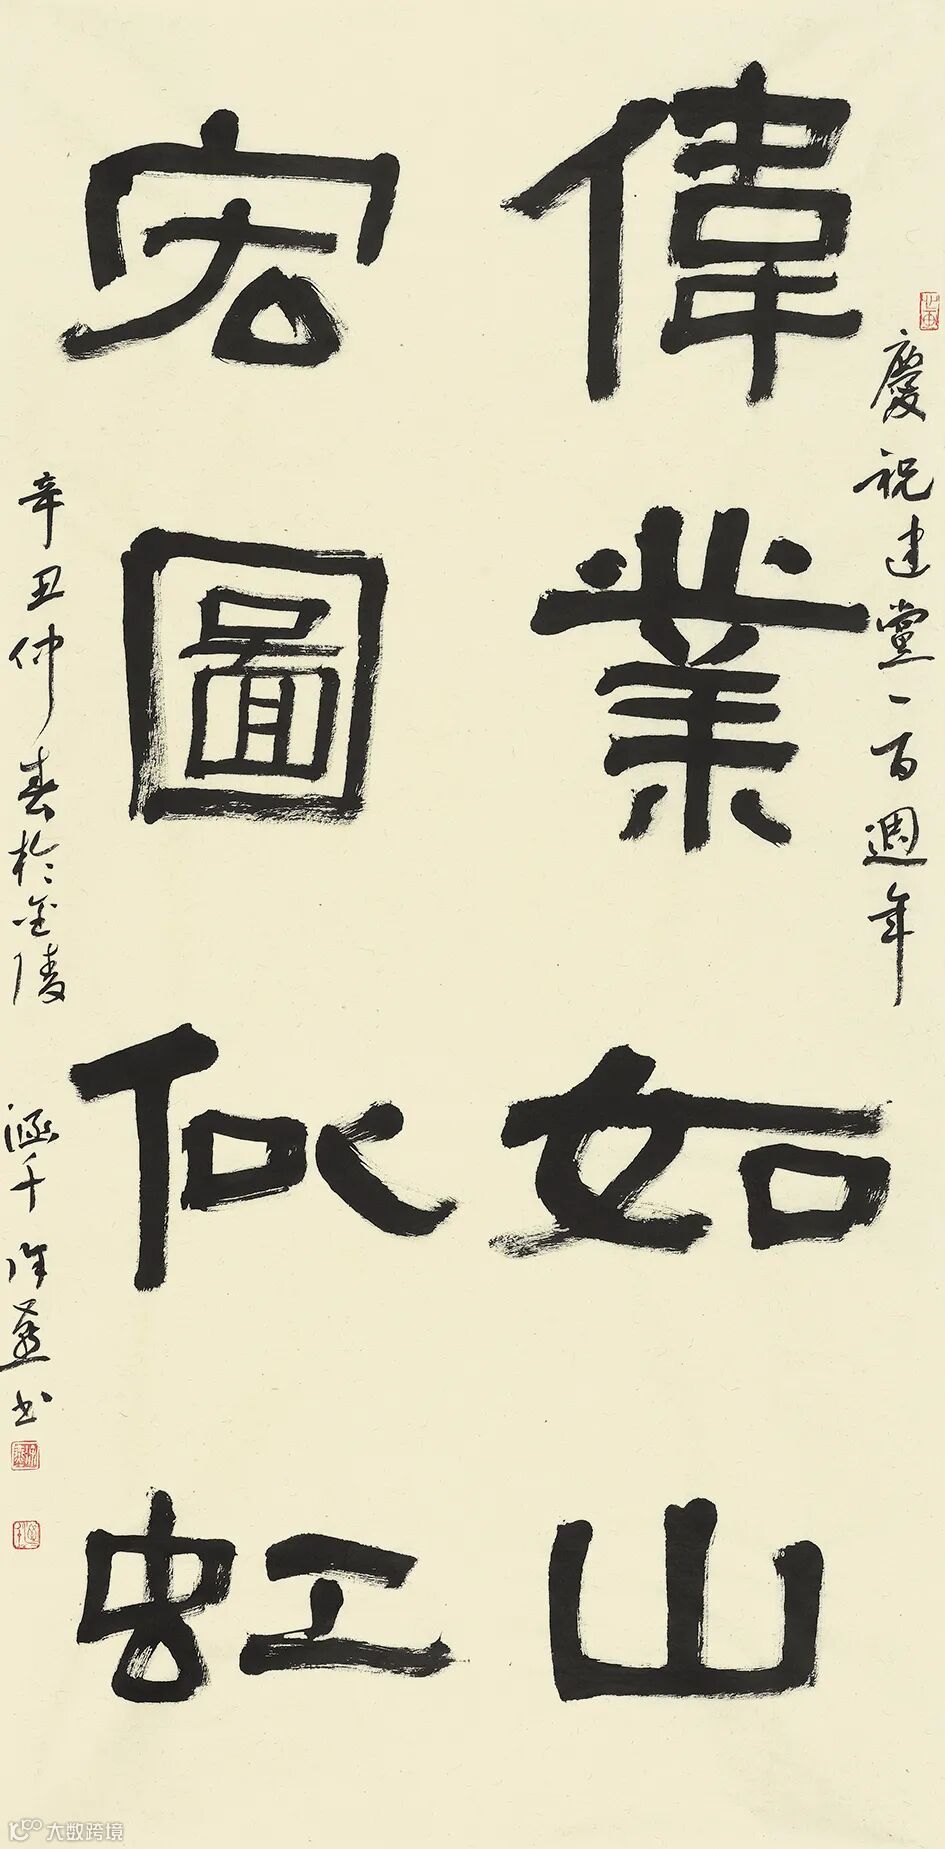 慶祝建黨一百週年
偉業如山
宏圖似虹
辛丑仲春於金陵 涵千徐燕书
大数跨境